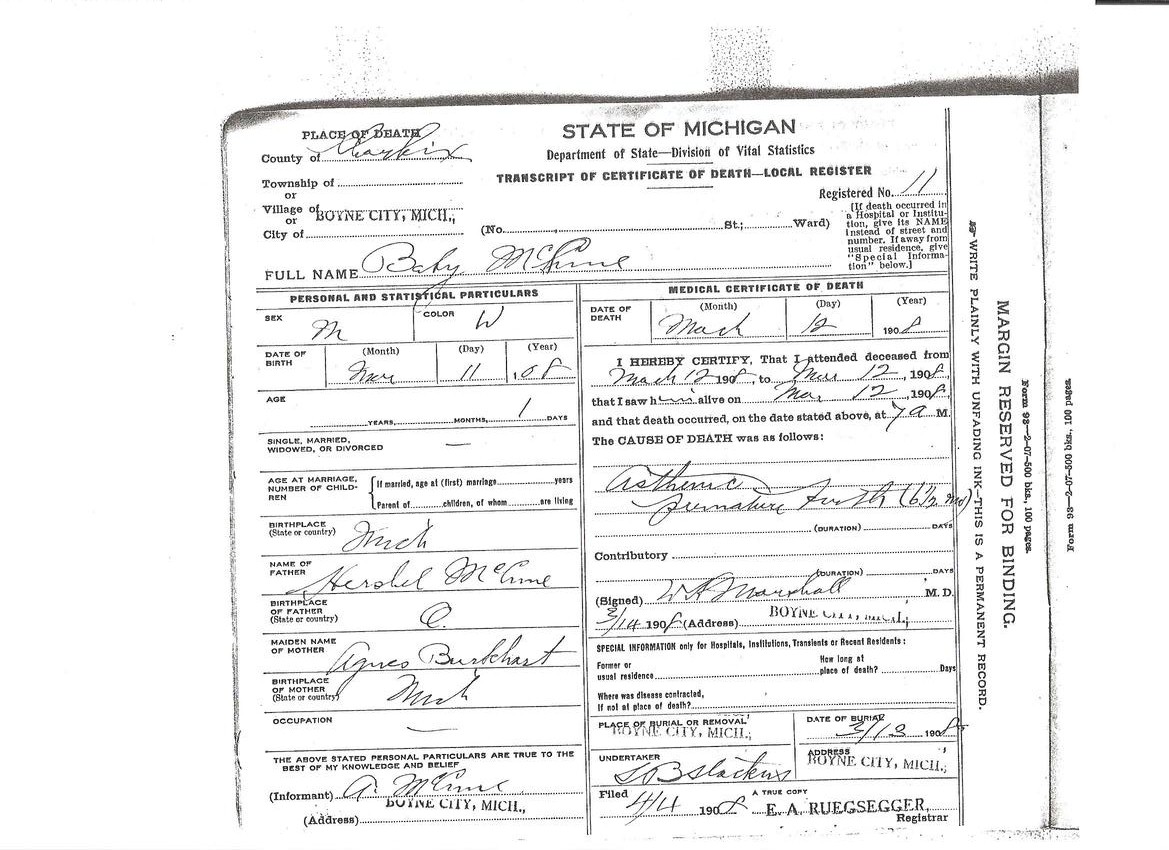 PLACE OF DEATH
County of
Township of
or
Village of BOYNE CITY, MICH.,
or
City of
STATE OF MICHIGAN
Department of State—Division of Vital Statistics
TRANSCRIPT OF CERTIFICATE OF DEATH—LOCAL REGISTER
Registered No. 11
(No. St.; Ward)
[If death occurred in
a Hospital or Institu-
tion, give its NAME
instead of street and
number. If away from
usual residence, give
"Special Informa-
tion" below.]
FULL NAME Baby
PERSONAL AND STATISTICAL PARTICULARS
SEX M
COLOR W
DATE OF
BIRTH
(Month) (Day) (Year)
Mar 11 , 08
AGE
YEARS, MONTHS, 1 DAYS
SINGLE, MARRIED,
WIDOWED, OR DIVORCED —
AGE AT MARRIAGE,
NUMBER OF CHILD-
REN
If married, age at (first) marriage years
Parent of children, of whom are living
BIRTHPLACE
(State or country) Mich
NAME OF
FATHER Hershel
BIRTHPLACE
OF FATHER
(State or country) O.
MAIDEN NAME
OF MOTHER Agnes Burkhart
BIRTHPLACE
OF MOTHER
(State or country) Mich
OCCUPATION —
THE ABOVE STATED PERSONAL PARTICULARS ARE TRUE TO THE
BEST OF MY KNOWLEDGE AND BELIEF
(Informant) A.
BOYNE CITY, MICH.,
(Address)
MEDICAL CERTIFICATE OF DEATH
DATE OF
DEATH
(Month) (Day) (Year)
Mach 12 1908
I HEREBY CERTIFY, That I attended deceased from
Mach 12 1908, to Mar 12, 1908,
that I saw him alive on Mar 12, 1908,
and that death occurred, on the date stated above, at 7 a M.
The CAUSE OF DEATH was as follows:
Asthenic
premature birth (6½ mo)
(DURATION) DAYS
Contributory
(DURATION) DAYS
(Signed) W A Marshall M. D.
3/14 1908 (Address) BOYNE CITY, MICH.,
SPECIAL INFORMATION only for Hospitals, Institutions, Transients or Recent Residents:
Former or
usual residence
How long at
place of death? Days
Where was disease contracted,
If not at place of death?
PLACE OF BURIAL OR REMOVAL
BOYNE CITY, MICH.,
DATE OF BURIAL
3/13 1908
UNDERTAKER
ADDRESS
BOYNE CITY, MICH.,
Filed
4/4 1908
A TRUE COPY
E. A. RUEGSEGGER,
Registrar
WRITE PLAINLY WITH UNFADING INK—THIS IS A PERMANENT RECORD.
MARGIN RESERVED FOR BINDING.
Form 98—2-07-500 bks., 100 pages.
Form 98—2-07-500 bks, 100 pages